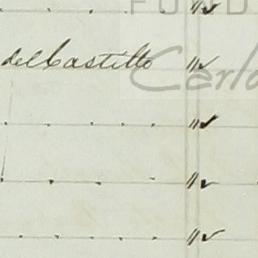 FUND
del Castillo "
Carlo